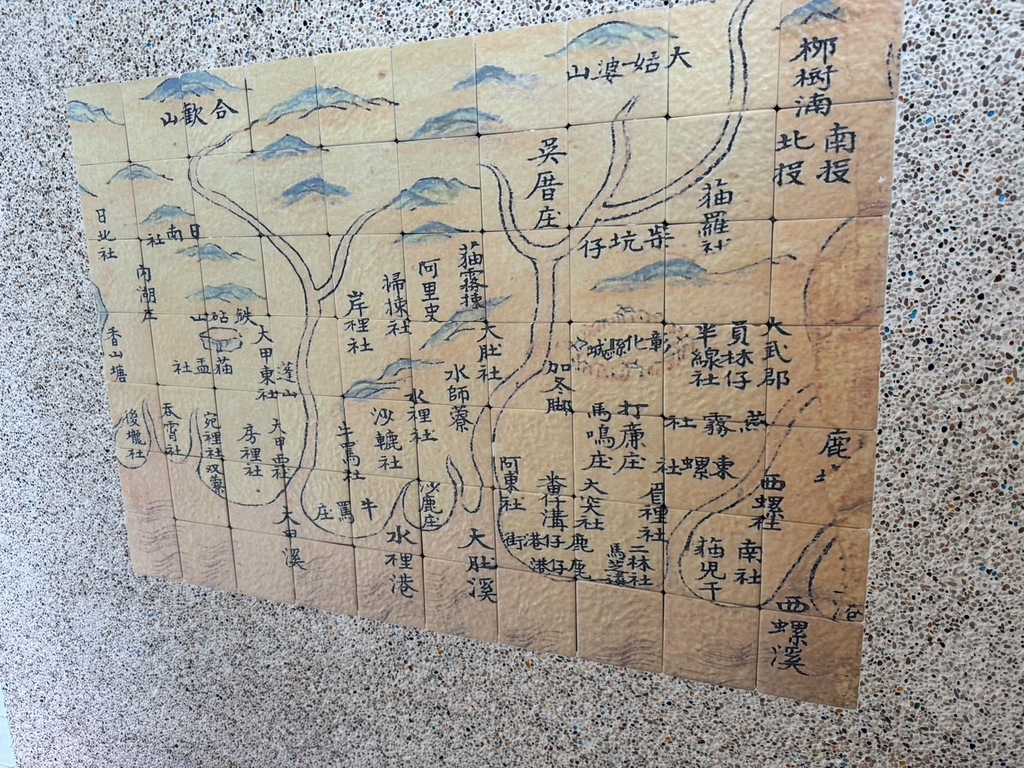 柳樹湳
南投
北投
大姑婆山
合歡山
吳厝庄
貓羅社
柴坑仔
日北社
日南社
內湖庄
香山塘
鉄砧山
貓盂社
大甲東社
蓬山
岸裡社
掃捒社
阿里史
貓霧捒
大肚社
彰化縣城
半線社
員林仔
大武郡
水師藔
水裡社
沙轆社
牛罵社
加冬脚
馬鳴庄
打廉庄
燕霧社
東螺社
後壠社
吞霄社
宛裡社
双藔
房裡社
大甲西社
阿東社
番仔溝
大突社
眉裡社
西螺社
鹿
牛罵庄
沙鹿庄
大甲溪
水裡港
大肚溪
鹿仔港街
鹿仔港
馬芝遴
二林社
貓児干
南社
西螺溪
港